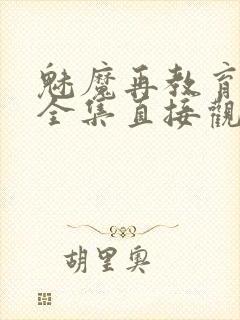 魅魔再教育
全集直接觀
胡里奧